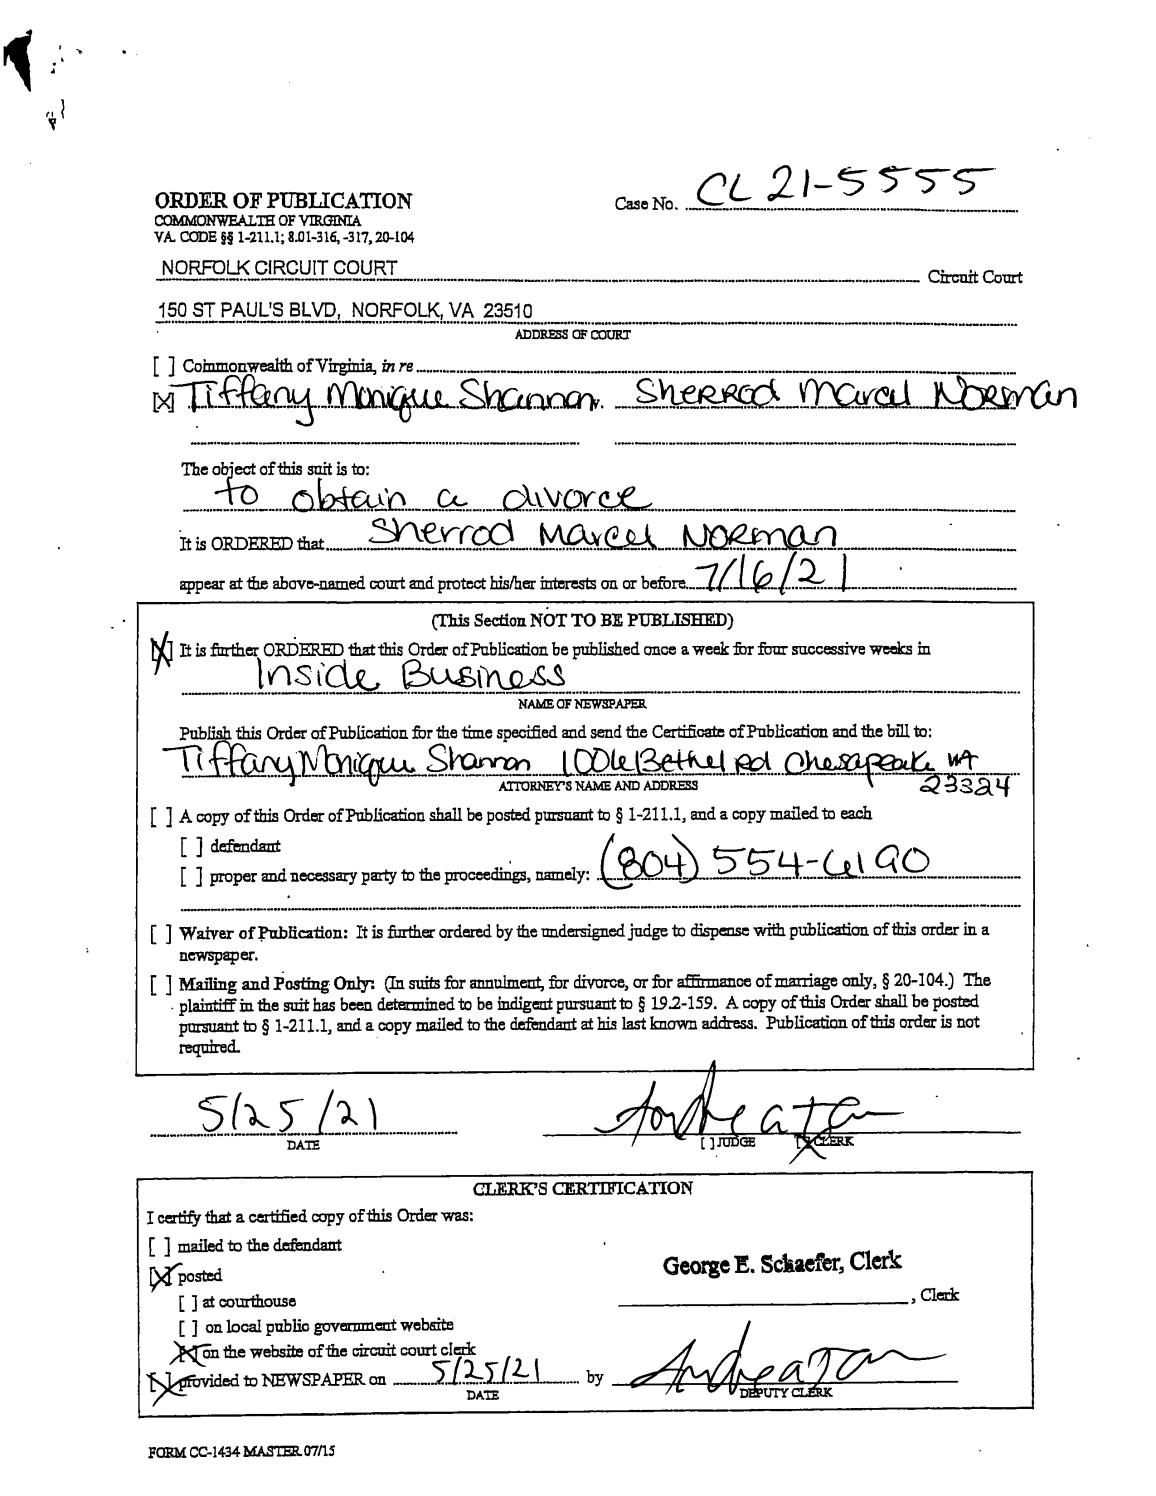 ORDER OF PUBLICATION
COMMONWEALTH OF VIRGINIA
VA. CODE §§ 1-211.1; 8.01-316, -317, 20-104
Case No. CL 21-5555
NORFOLK CIRCUIT COURT Circuit Court
150 ST PAUL'S BLVD, NORFOLK, VA 23510
ADDRESS OF COURT
[ ] Commonwealth of Virginia, in re
[X] Tiffany Monique Shannon v. Sherrod Marcel Norman
The object of this suit is to:
to obtain a divorce
It is ORDERED that Sherrod Marcel Norman
appear at the above-named court and protect his/her interests on or before 7/16/21
(This Section NOT TO BE PUBLISHED)
[X] It is further ORDERED that this Order of Publication be published once a week for four successive weeks in
Inside Business
NAME OF NEWSPAPER
Publish this Order of Publication for the time specified and send the Certificate of Publication and the bill to:
Tiffany Monique Shannon Bethel Rd Chesapeake VA
23324
ATTORNEY'S NAME AND ADDRESS
[ ] A copy of this Order of Publication shall be posted pursuant to § 1-211.1, and a copy mailed to each
[ ] defendant
[ ] proper and necessary party to the proceedings, namely: (804) 554-6190
[ ] Waiver of Publication: It is further ordered by the undersigned judge to dispense with publication of this order in a
newspaper.
[ ] Mailing and Posting Only: (In suits for annulment, for divorce, or for affirmance of marriage only, § 20-104.) The
plaintiff in the suit has been determined to be indigent pursuant to § 19.2-159. A copy of this Order shall be posted
pursuant to § 1-211.1, and a copy mailed to the defendant at his last known address. Publication of this order is not
required.
5/25/21
DATE
[ ] JUDGE [X] CLERK
CLERK'S CERTIFICATION
I certify that a certified copy of this Order was:
[ ] mailed to the defendant
[X] posted
George E. Schaefer, Clerk
[ ] at courthouse
, Clerk
[ ] on local public government website
[X] on the website of the circuit court clerk
[X] provided to NEWSPAPER on 5/25/21 by
DATE
DEPUTY CLERK
FORM CC-1434 MASTER 07/15